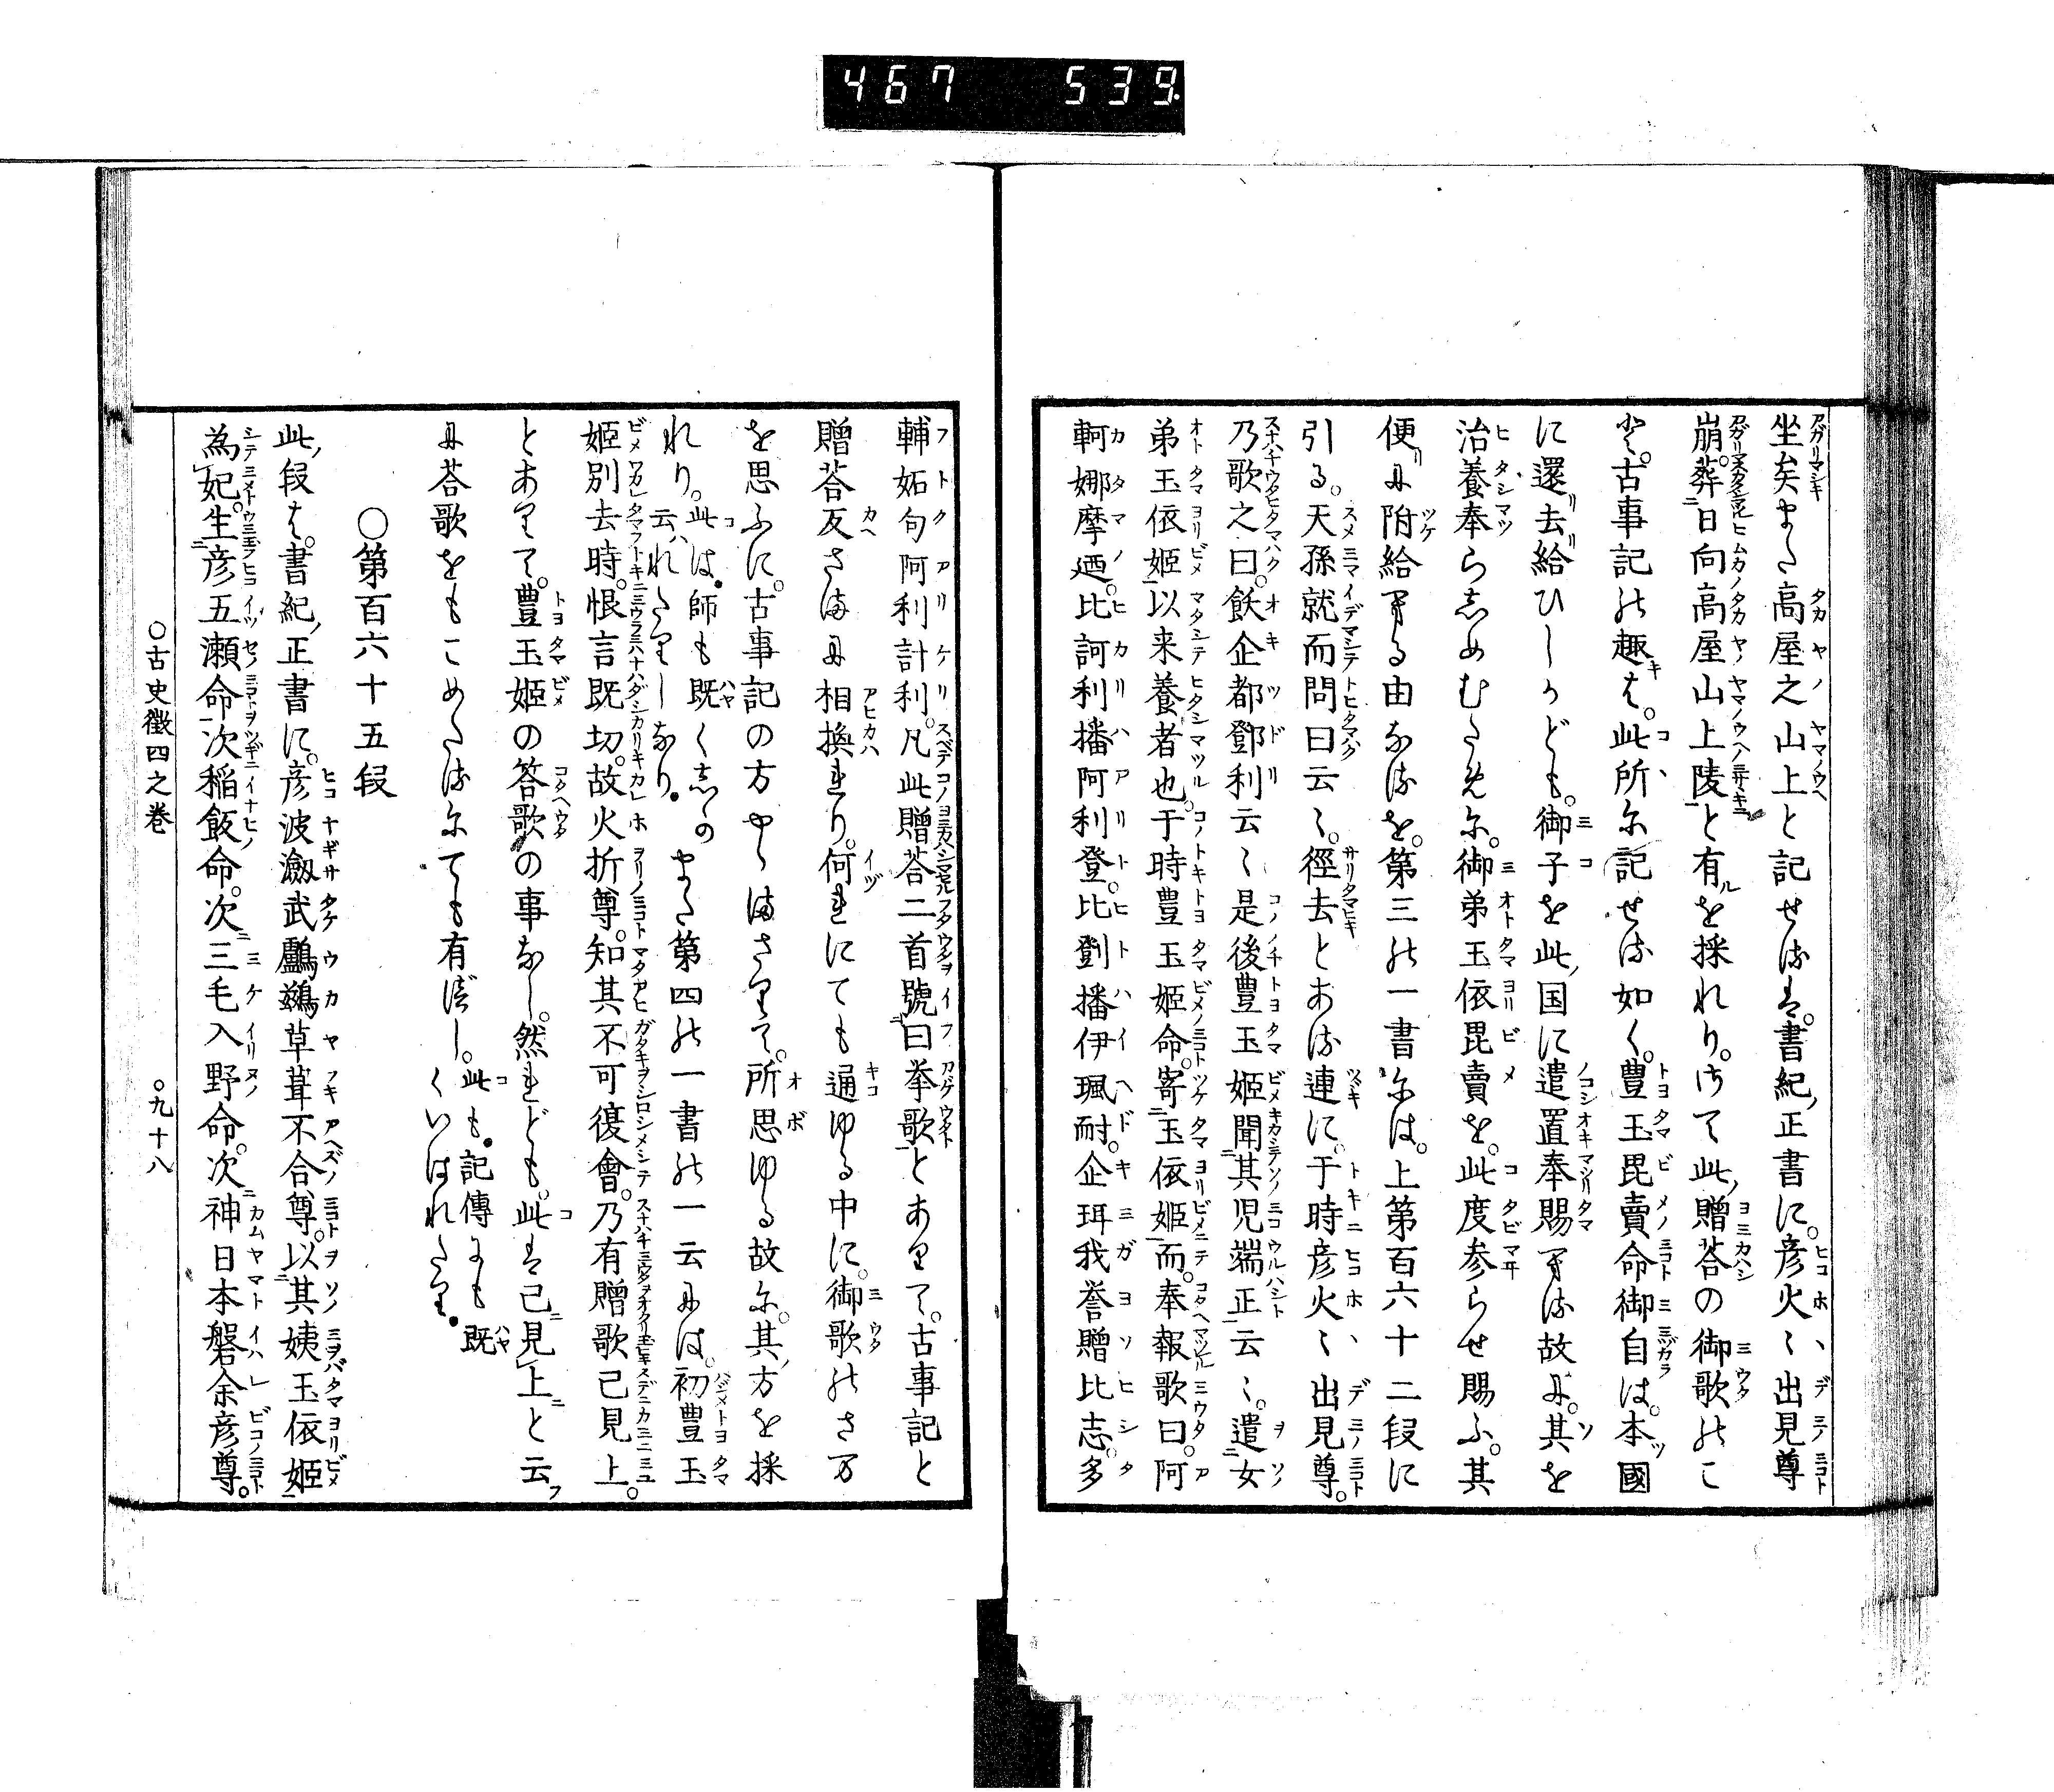 467 539.
坐矣また高屋之山上と記せるは。書紀正書に。彦火〻出見尊
崩。葬日向高屋山上陵と有を採れり。さて此贈荅の御歌のこ
と。古事記の趣は。此所に記せる如く。豊玉毘賣命御自は。本國
に還去給ひしかども。御子を此国に遣置奉賜へる故に。其を
治養奉らしめむために。御弟玉依毘賣を。此度参らせ賜ふ。其
便に附給へる由なるを。第三の一書には。上第百六十二段に
引る。天孫就而問曰云〻。徑去とある連に。于時彦火〻出見尊。
乃歌之曰。飫企都鄧利云〻是後豊玉姫聞其児端正云〻。遣女
弟玉依姫以来養者也。于時豊玉姫命。寄玉依姫而。奉報歌曰。阿
軻娜摩廼。比訶利播阿利登。比鄧播伊珮耐。企珥我誉贈比志。多
輔妬句阿利計利。凡此贈荅二首號曰挙歌とありて。古事記と
贈荅反さまに相換れり。何れにても通ゆる中に。御歌のさま
を思ふに。古事記の方やゝまさりて。所思ゆる故に。其方を採
れり。此は。師も既く志かの云れたりしなり。また第四の一書の一云には。初豊玉
姫別去時。恨言既切。故火折尊。知其不可復會。乃有贈歌已見上。
とありて。豊玉姫の答歌の事なし。然れども。此は已見上と云
に荅歌をもこめたるにても有べし。此も。記傳にも既くいはれたり。
○第百六十五段
此段は。書紀正書に。彦波瀲武鸕鷀草葺不合尊。以其姨玉依姫
為妃。生彦五瀬命。次稲飯命。次三毛入野命。次神日本磐余彦尊。
○古史徴四之巻 ○九十八